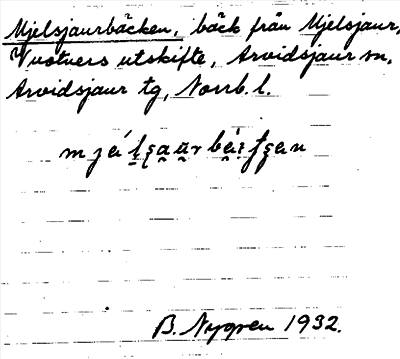 Mjelsjaurbäcken, bäck från Mjelsjaur,
Vuotners utskifte, Arvidsjaur sn,
Arvidsjaur tg, Norrb. l.
B. Nygren 1932.